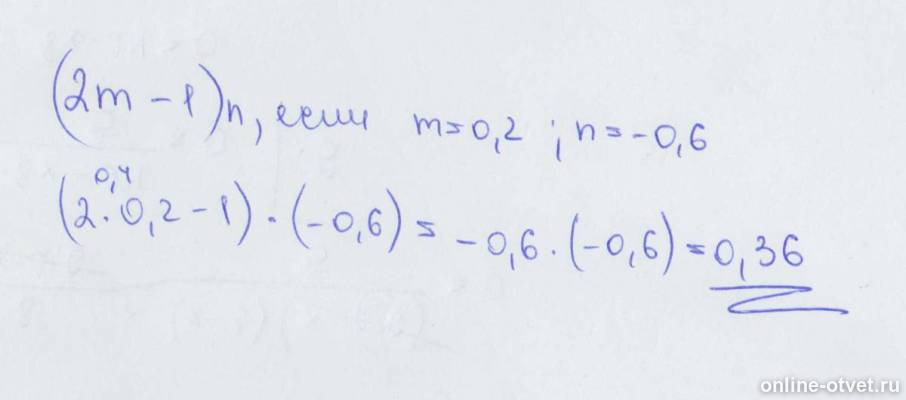 (2m - 1)n, если m=0,2 ; n=-0,6
0,4
(2·0,2-1)·(-0,6)= -0,6·(-0,6)=0,36
online-otvet.ru